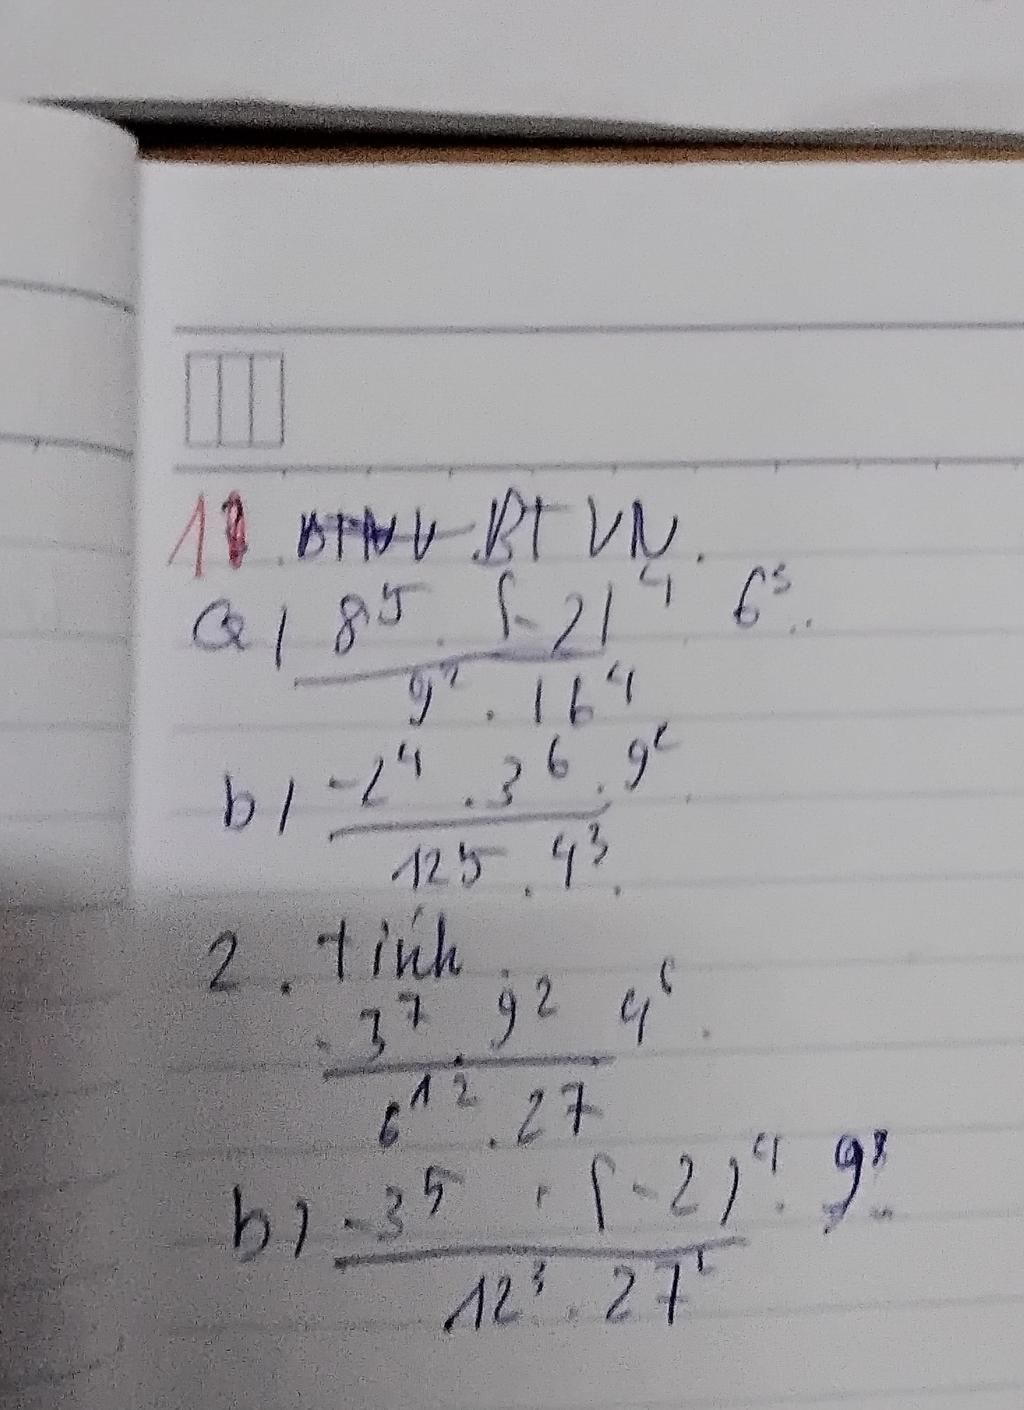 1. BTVN.
a) 8⁵ . (-2)⁴ 6³..
9² . 16⁴
b) -2⁴ . 3⁶ . 9²
12⁵ . 4³.
2. Tính.
-3⁷ . 9² 4⁶.
6¹² . 27
b) -3⁵ . (-2)⁴ . 9⁸..
12³ . 27²